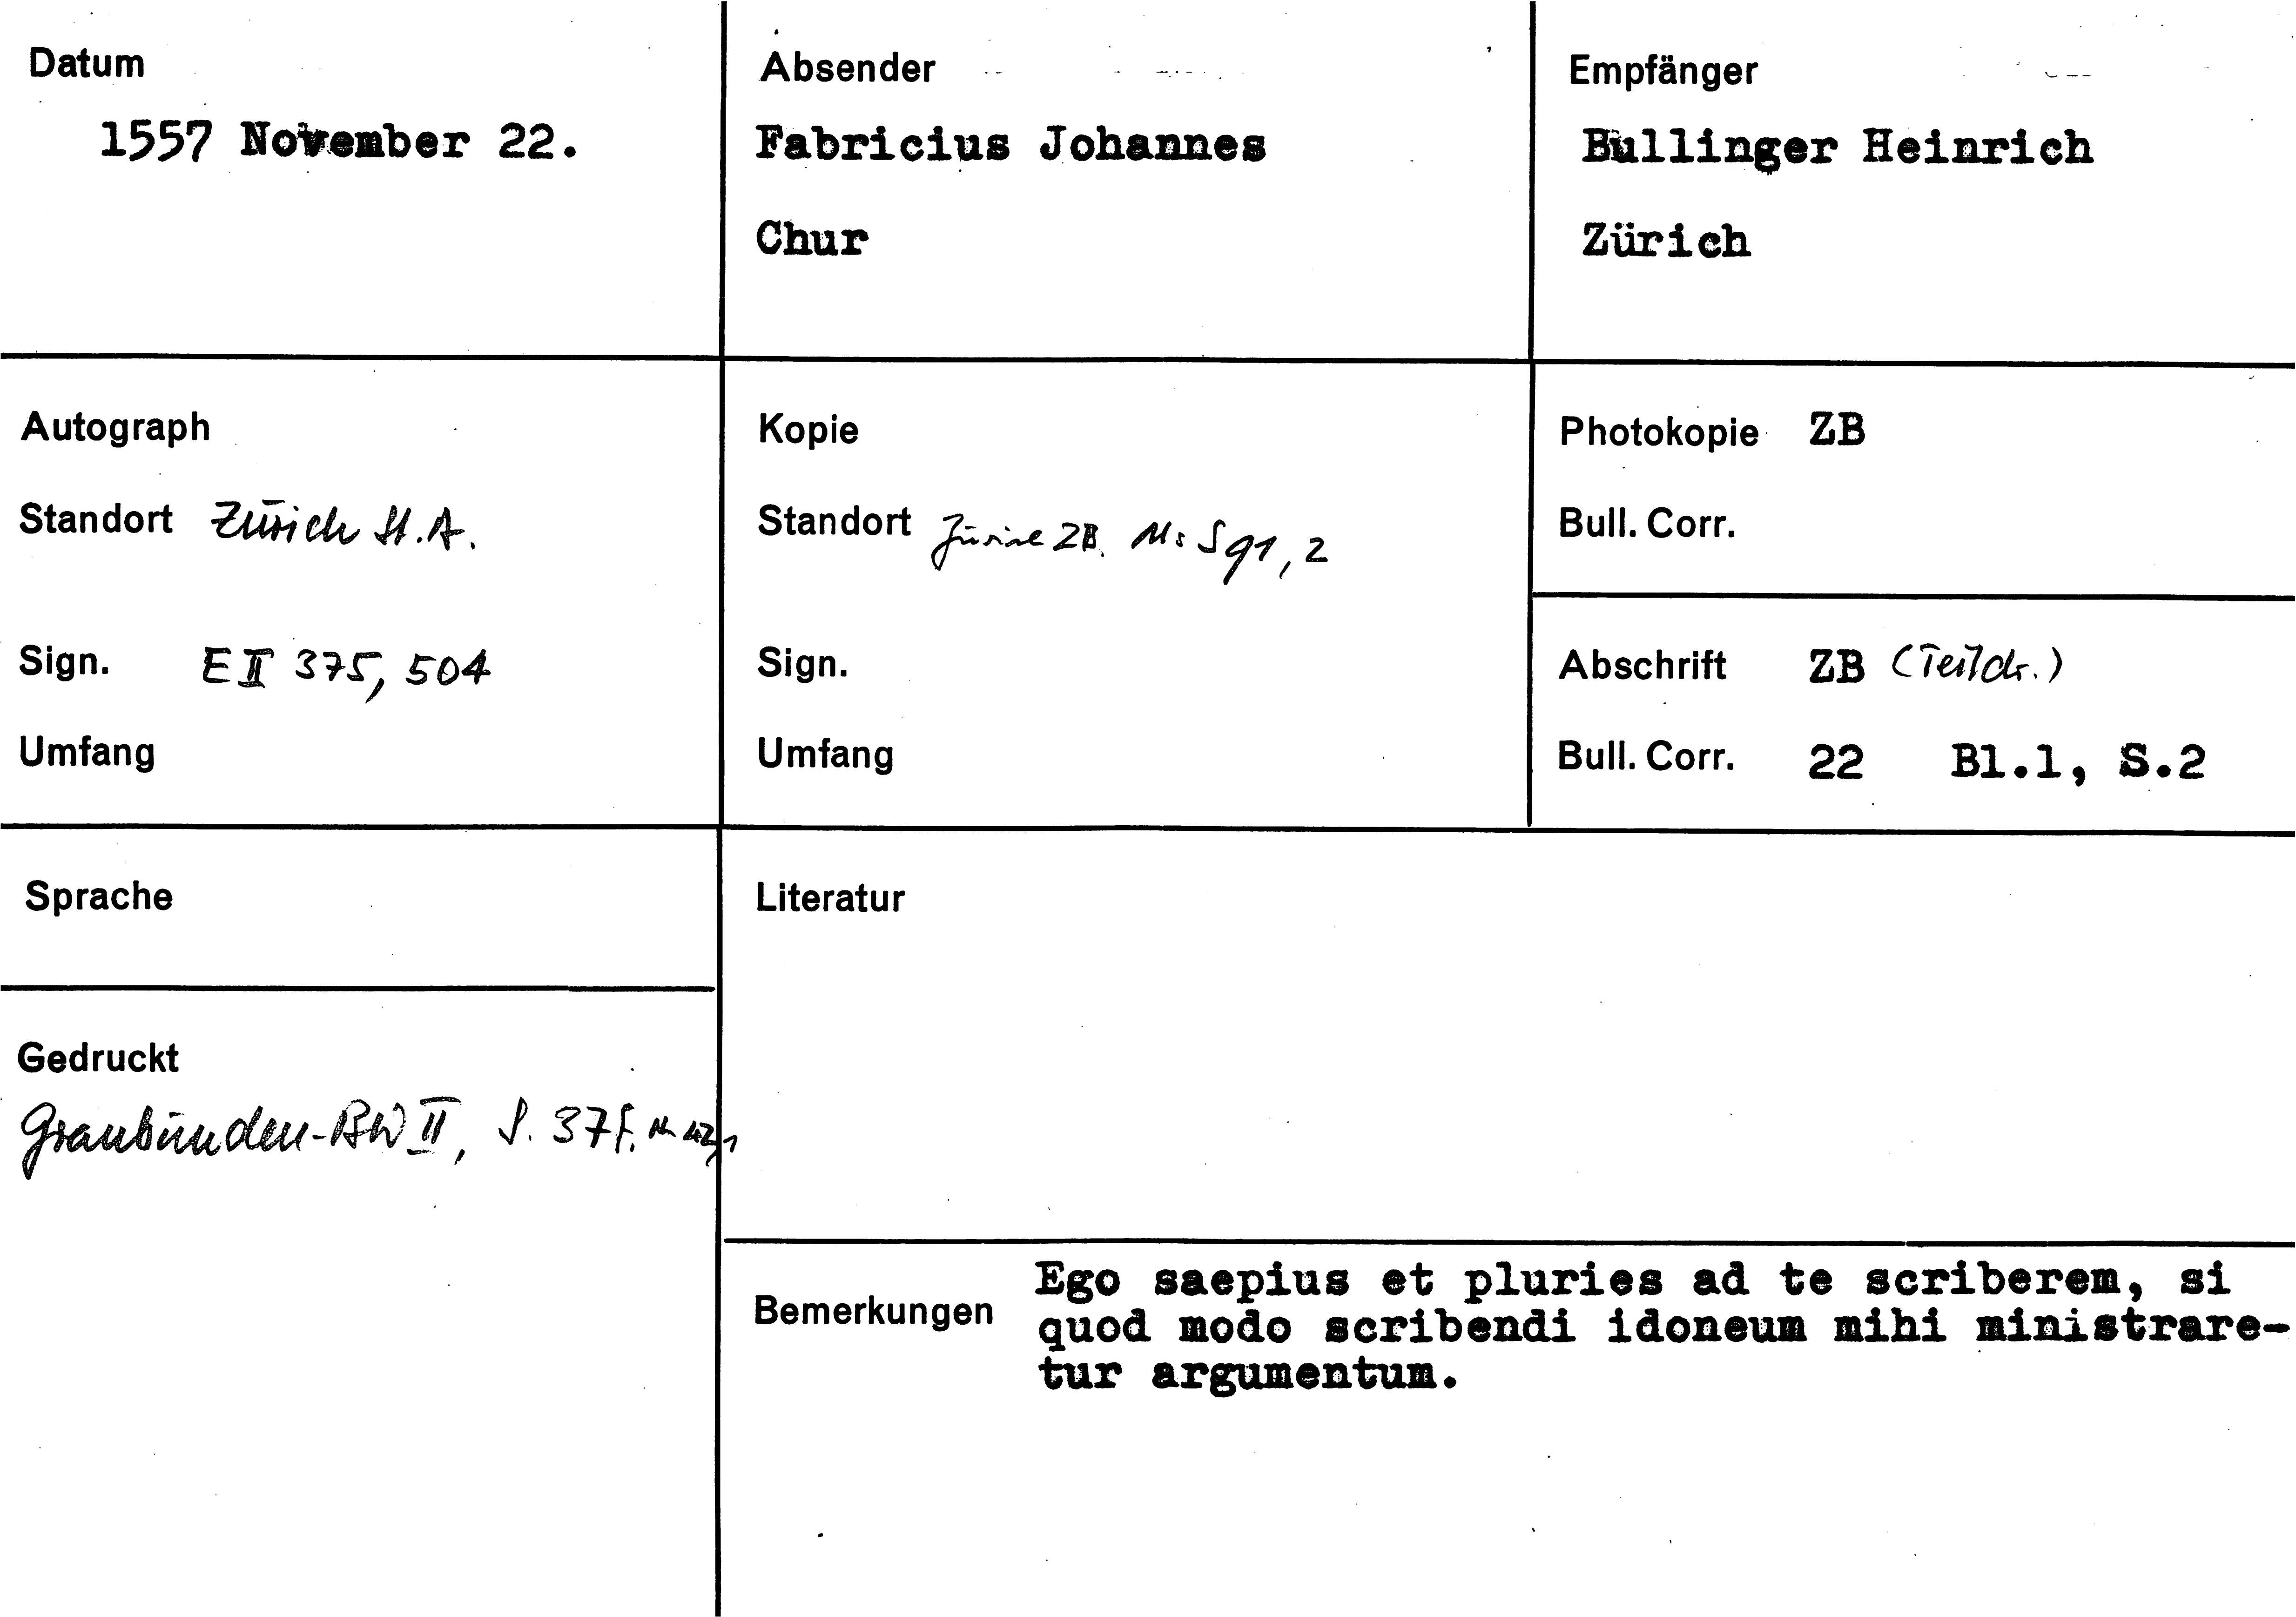 Datum
1557 November 22.
Absender
Fabricius Johannes
Chur
Empfänger
Bullinger Heinrich
Zürich
Autograph
Standort Zürich St.A.
Sign. E II 375, 504
Umfang
Kopie
Standort Zürich ZB. Ms S 91, 2
Sign.
Umfang
Photokopie ZB
Bull. Corr.
Abschrift ZB (Teildr.)
Bull. Corr. 22 Bl.1, S.2
Sprache
Gedruckt
Graubünden-BW II, S. 37f. Nr 42,1
Literatur
Bemerkungen
Ego saepius et pluries ad te scriberem, si
quod modo scribendi idoneum mihi ministrare-
tur argumentum.